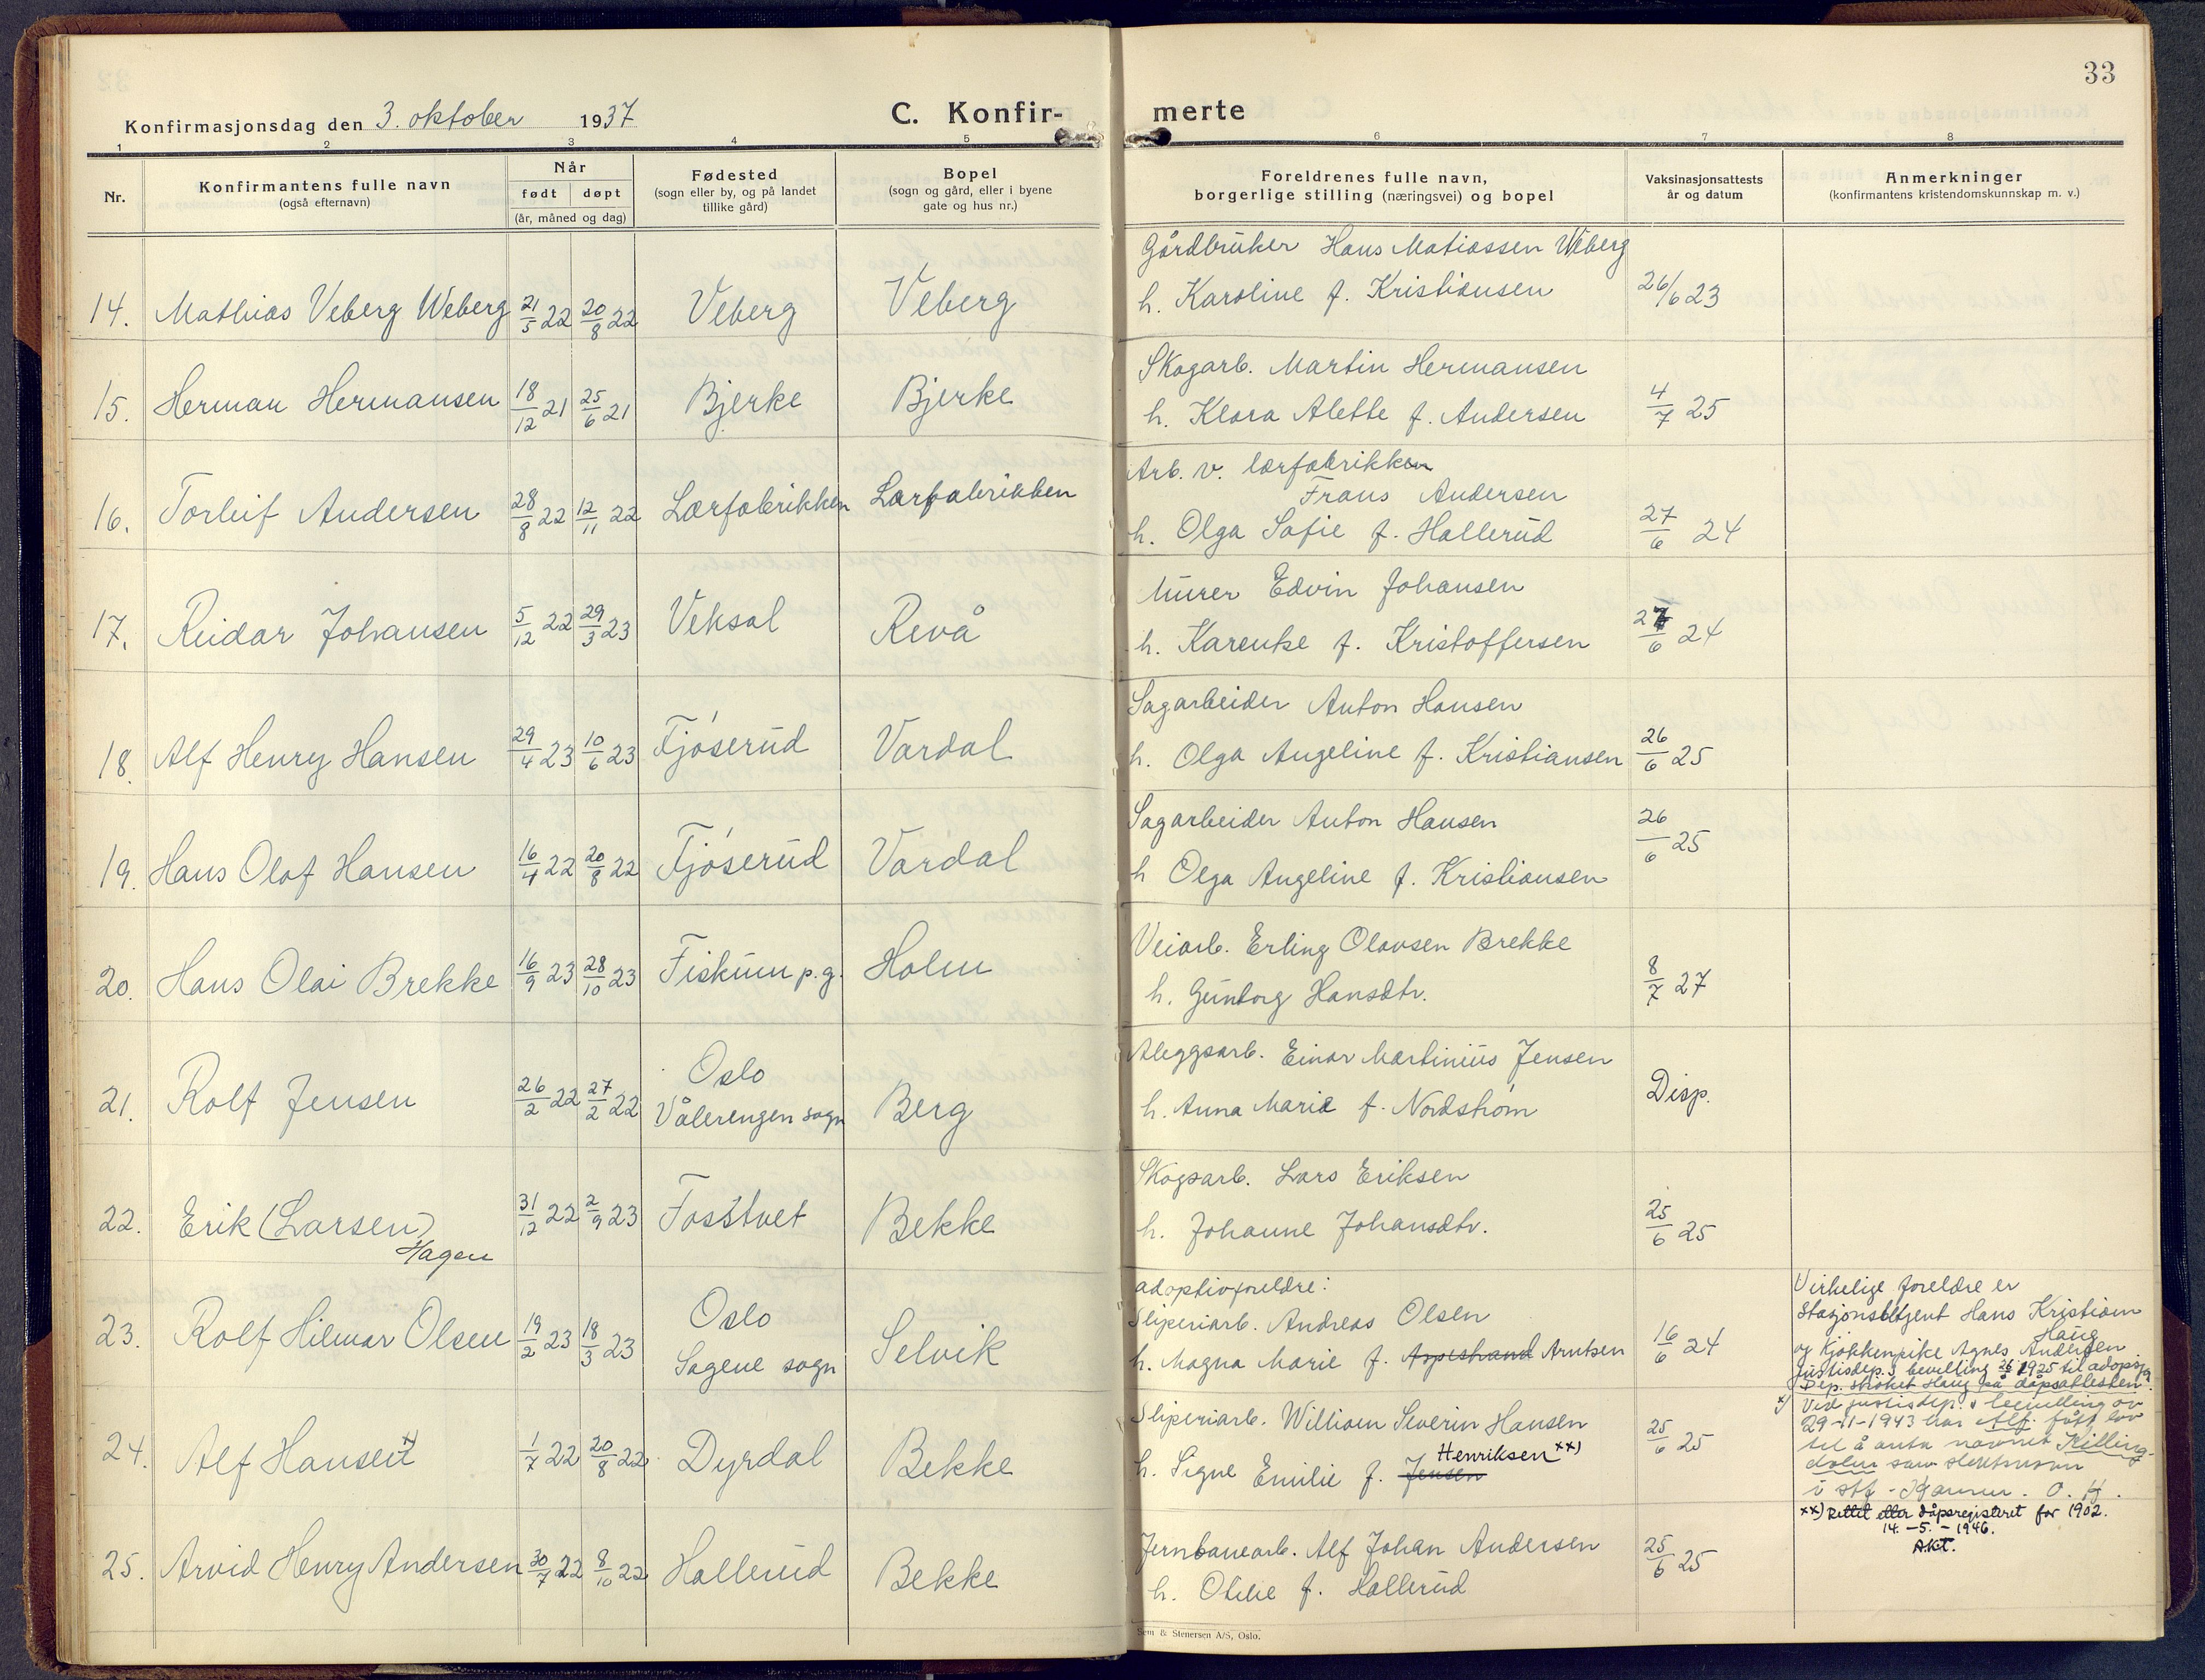 33
Konfirmasjonsdag den 3. oktober 1937
C. Konfir-
merte
1 2 3 4 5 6 7 8
Nr.
Konfirmantens fulle navn
(også efternavn)
Når
født døpt
(år, måned og dag)
Fødested
(sogn eller by, og på landet
tillike gård)
Bopel
(sogn og gård, eller i byene
gate og hus nr.)
Foreldrenes fulle navn,
borgerlige stilling (næringsvei) og bopel
Vaksinasjonsattests
år og datum
Anmerkninger
(konfirmantens kristendomskunnskap m. v.)
14. Mathias Veberg Weberg 21/5 22 20/8 22 Veberg Veberg
Gårdbruker Hans Matiassen Weberg
h. Karoline f. Kristiansen 26/6 23
15. Herman Hermansen 18/12 21 25/6 21 Bjerke Bjerke
Skogarb. Martin Hermansen
h. Klara Alette f. Andersen 4/7 25
16. Torleif Andersen 28/8 22 12/11 22 Lærfabrikken Lærfabrikken
Arb. v. lærfabrikken
Frans Andersen
h. Olga Sofie f. Hallerud 27/6 24
17. Reidar Johansen 5/12 22 29/3 23 Veksal Revå
Murer Edvin Johansen
h. Karentse f. Kristoffersen 27/6 24
18. Alf Henry Hansen 29/4 23 10/6 23 Fjøserud Vardal
Sagarbeider Anton Hansen
h. Olga Angeline f. Kristiansen 26/6 25
19. Hans Olaf Hansen 16/4 22 20/8 22 Fjøserud Vardal
Sagarbeider Anton Hansen
h Olga Angeline f. Kristiansen 26/6 25
20. Hans Olai Brekke 16/9 23 28/10 23 Fiskum p.g. Holm
Veiarb. Erling Olavsen Brekke
h. Gunborg Hansdtr. 8/7 27
21. Rolf Jensen 26/2 22 27/2 22 Oslo
Vålerengen sogn Berg
Aleggsarb. Einar Martinius Jensen
h. Anna Marie f. Nordstrøm Disp.
22. Erik (Larsen) 31/12 22 2/9 23 Fosstvet Bekke
Hagen
Skogsarb. Lars Eriksen
h. Johanne Johansdtr. 25/6 25
23. Rolf Hilmar Olsen 19/2 23 18/3 23 Oslo
Sagene sogn Selvik
adoptivforeldre:
Sliperiarb. Andreas Olsen
h. Magna Marie f. Arntsen 16/6 24
Virkelige foreldre er
Stasjonsbetjent Hans Kristian
Haug
og Kjøkkenpike Agnes Andersen
Justisdep.s bevilling 26/ 1925 til adopsj.
Dep. strøket Haug på dåpsattesten.
24. Alf Hansen x) 1/7 22 20/8 22 Dyrdal Bekke
Sliperiarb. William Severin Hansen
Henriksen xx)
h. Signe Emilie f. Jensen 25/6 25
x) Ved justisdep.s bevilling av
29-11-1943 har Alf. fått lov
til å anta navnet Killing-
dalen som slektsnavn
xx) Rettet etter dåpsregisteret for 1902.
14. -5. - 1946.
A.K.T.
25. Arvid Henry Andersen 30/7 22 8/10 22 Hallerud Bekke
Jernbanearb. Alf Johan Andersen
h. Otilie f. Hallerud 25/6 25
Sem & Stenersen A/S, Oslo.